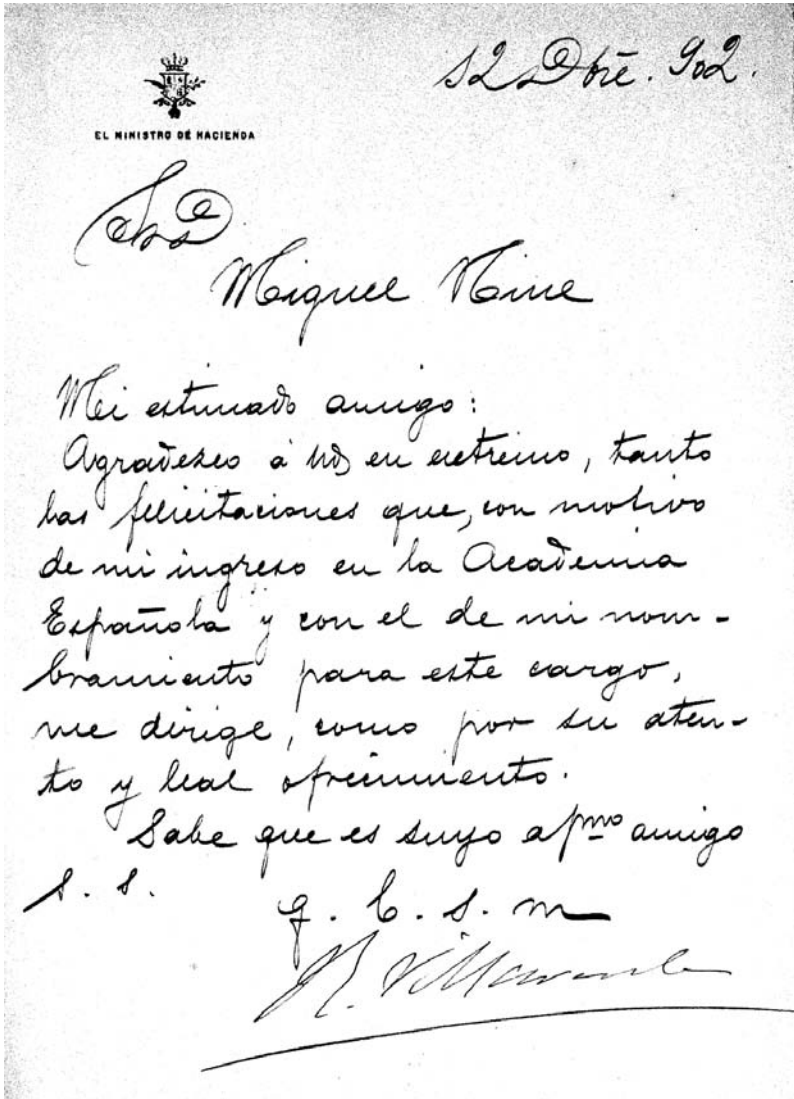 12 Dbre. 902.
EL MINISTRO DE HACIENDA
Sr D
Miguel Mir
Mi estimado amigo:
Agradezco á Vd en extremo, tanto
las felicitaciones que, con motivo
de mi ingreso en la Academia
Española y con el de mi nom-
bramiento para este cargo,
me dirige, como por su aten-
to y leal ofrecimiento.
Sabe que es suyo afmo amigo
s. s.
q. b. s. m
R. Villaverde